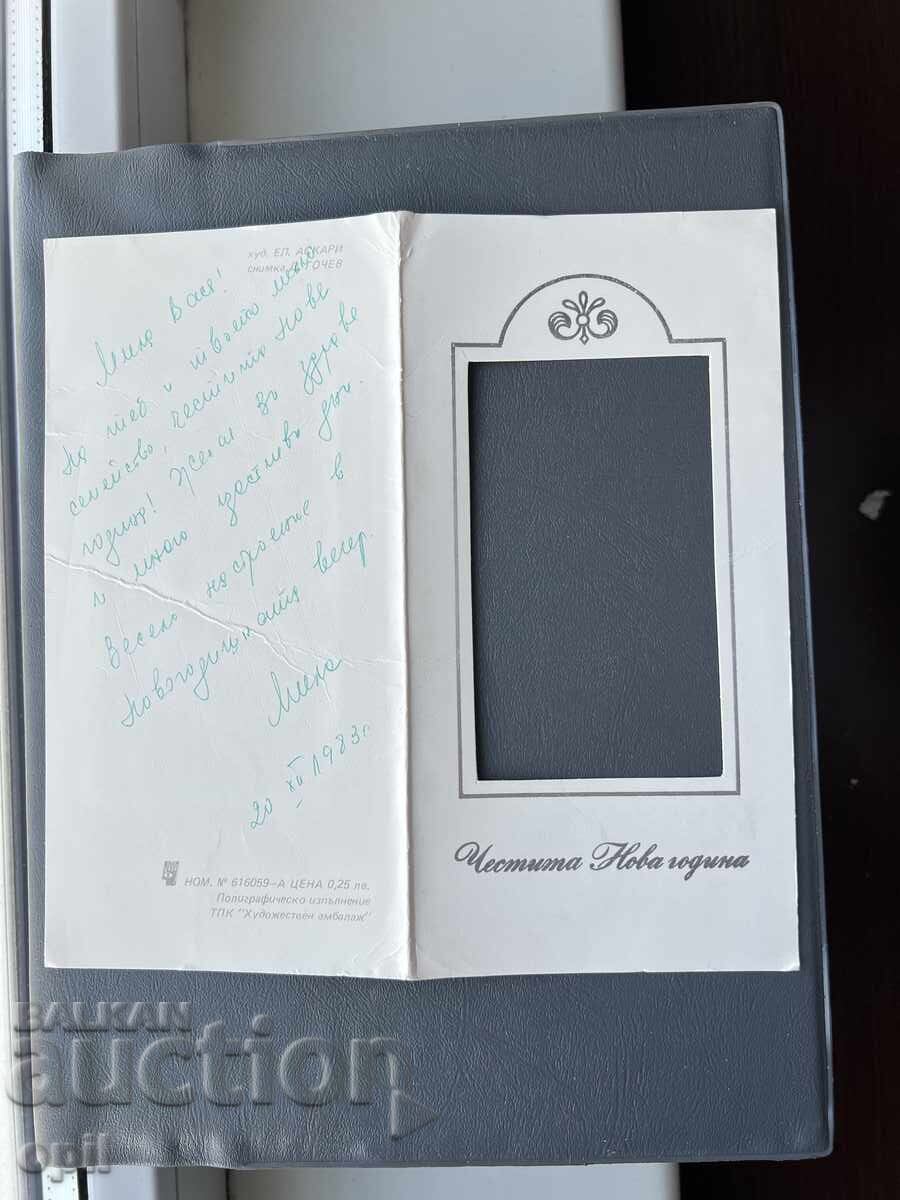 худ. ЕЛ. АСКАРИ
снимка ГОЧЕВ
Мила Вася!
На теб и твоето мило
семейство, честита Нова
година! Желая Ви здраве
и много щастливи дни.
Весело настроение в
Новогодишната вечер.
20 XII 1983 г.
НОМ. № 616059—А ЦЕНА 0,25 лв.
Полиграфическо изпълнение
ТПК "Художествен амбалаж"
Честита Нова година
BALKAN
auction
opil